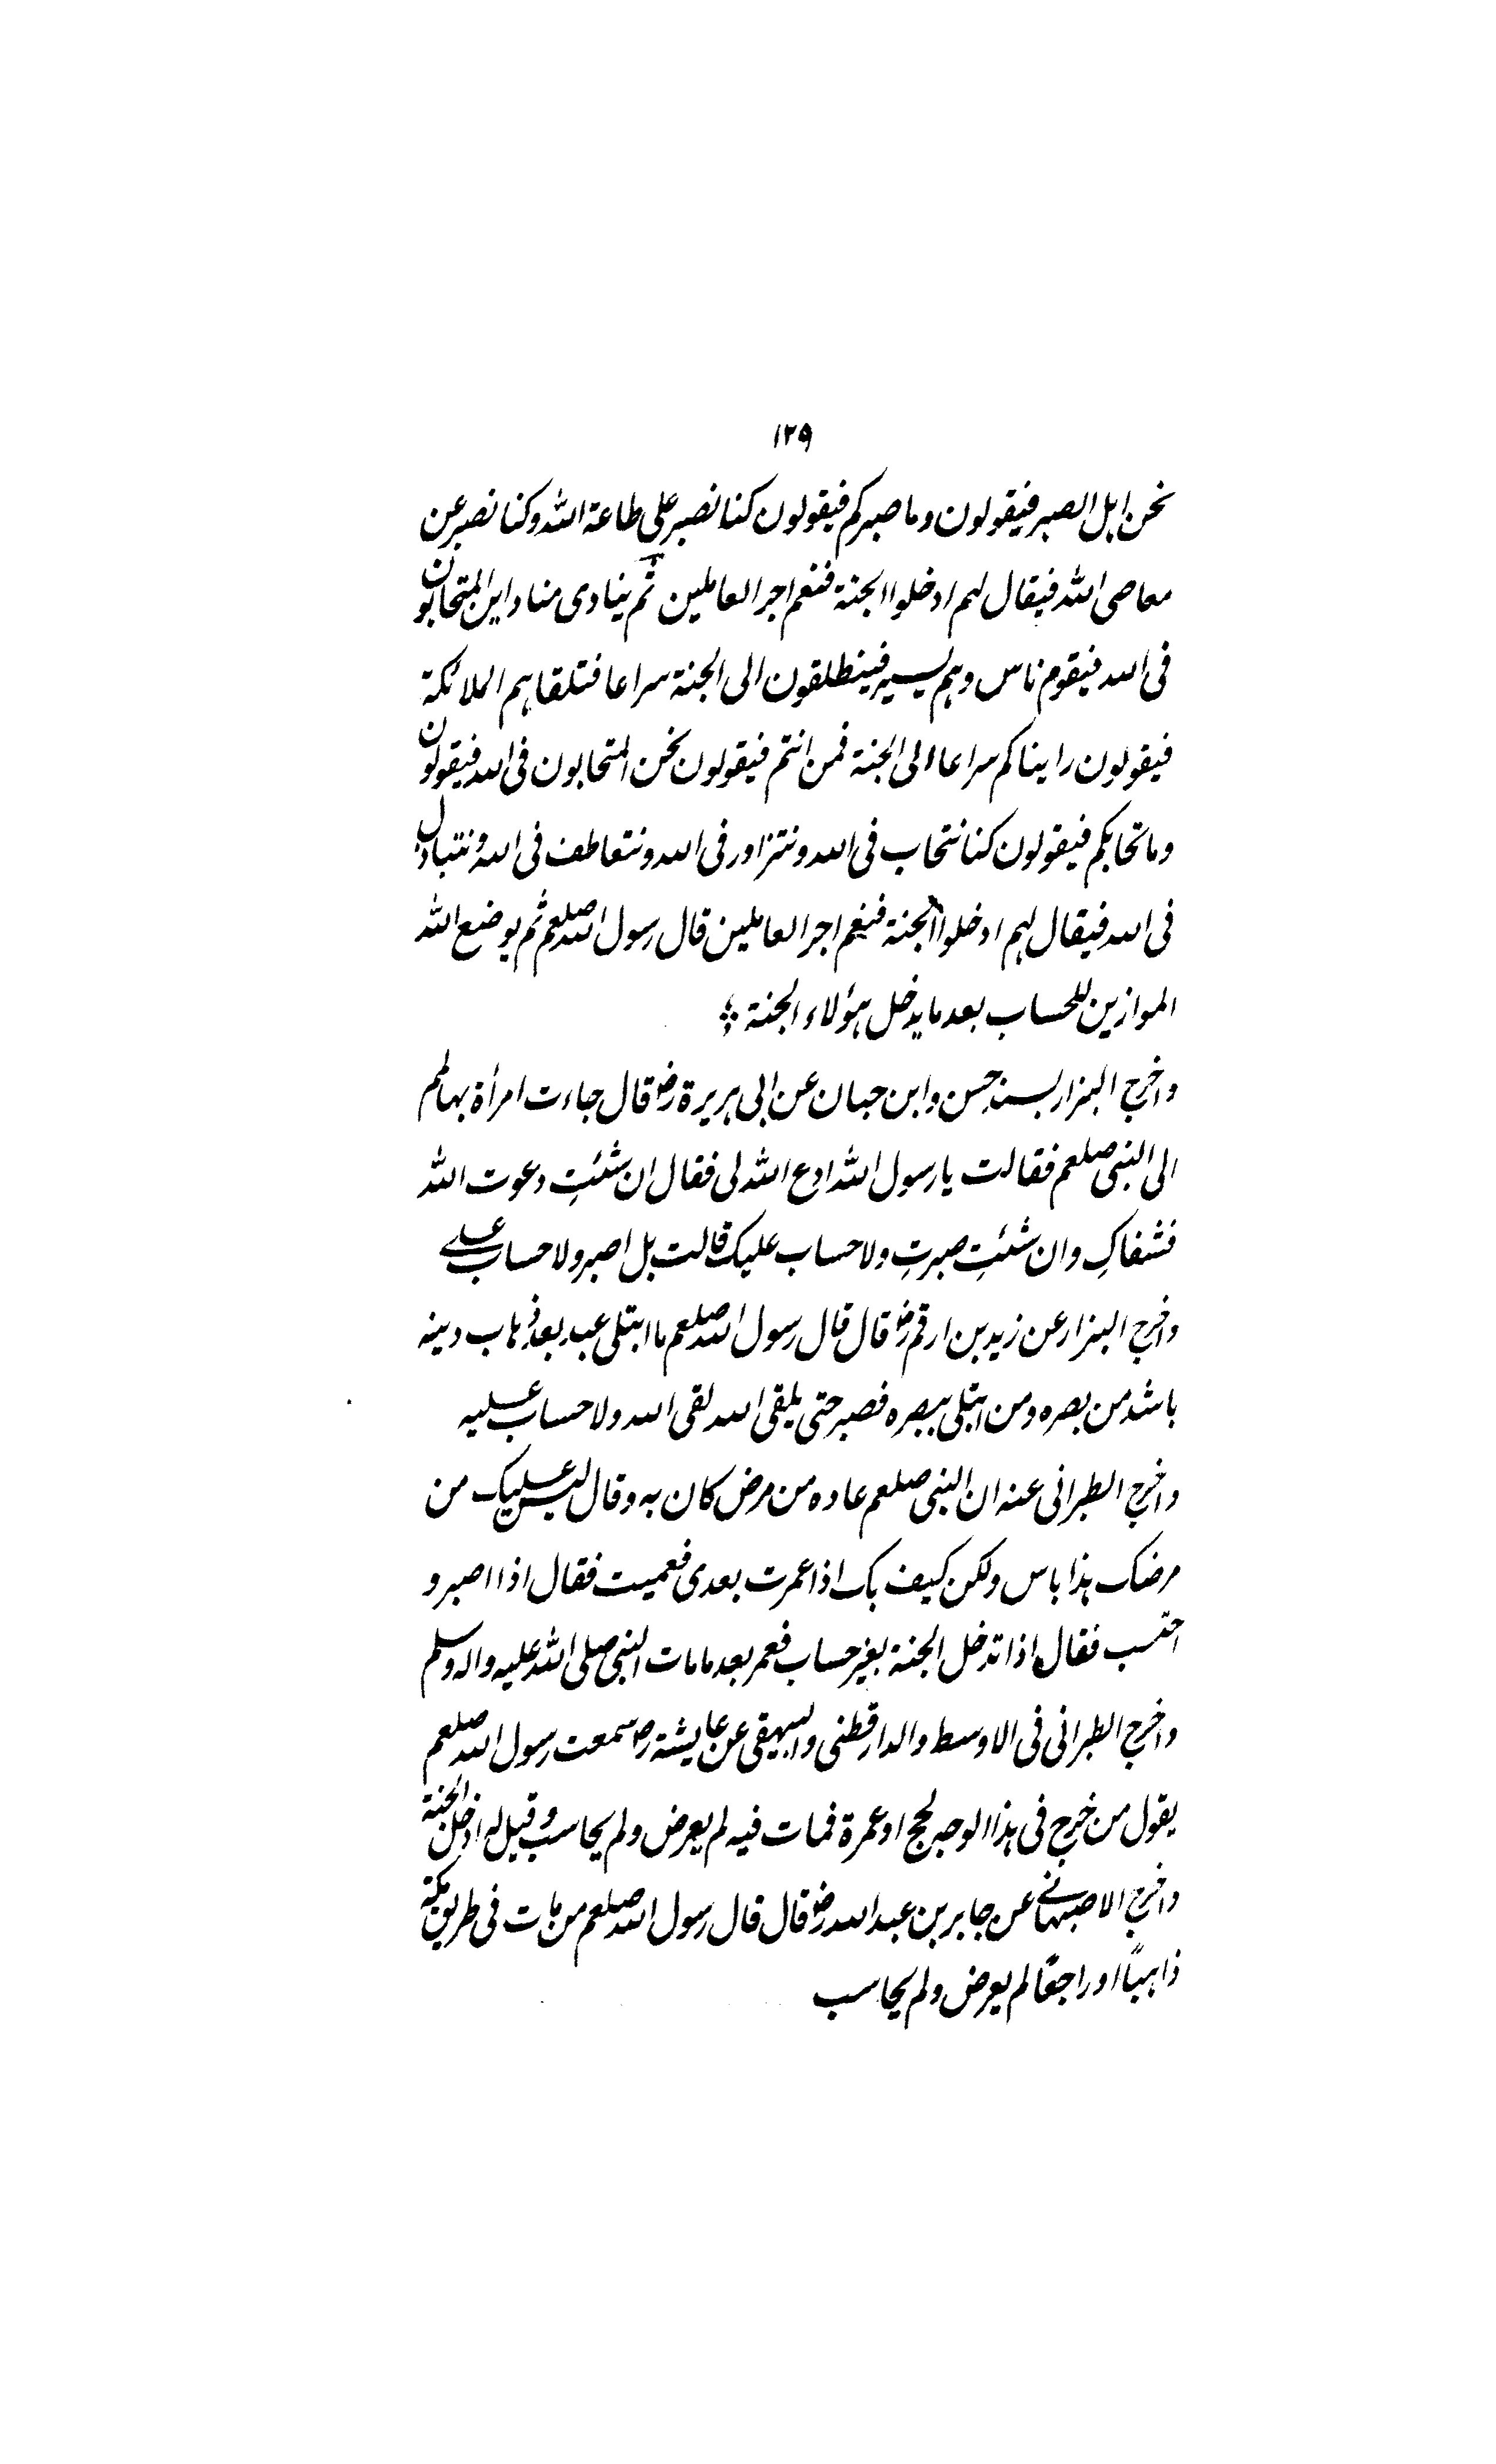 ۱۲۹
نحن اہل الصبر فیقولون وما صبرکم فیقولون کنا نصبر علی طاعة اللہ وکنا نصبر عن
معاصی اللہ فیقال لہم ادخلوا الجنة فنعم اجر العاملین ثم ینادی مناد این المتحابون
فی اللہ فیقوم ناس وہم یسیر فینطلقون الی الجنة سراعا فتلقاہم الملائکة
فیقولون راینا کم سراعا الی الجنة فمن انتم فیقولون نحن المتحابون فی اللہ فیقولون
وما تحابکم فیقولون کنا نتحاب فی اللہ ونتزاور فی اللہ ونتعاطف فی اللہ ونتبادل
فی اللہ فیقال لہم ادخلوا الجنة فنعم اجر العاملین قال رسول اللہ صلعم ثم یوضع اللہ
الموازین للحساب بعد ما یدخل ہؤلاء الجنة ؞
واخرج البزار بسند حسن وابن حبان عن ابی ہریرة رضـ قال جاءت امرأة بہا لمم
الی النبی صلعم فقالت یا رسول اللہ ادع اللہ لی فقال ان شئتِ دعوت اللہ
فشفاکِ وان شئتِ صبرتِ ولا حساب علیک قالت بل اصبر ولا حساب علے
واخرج البزار عن زید بن ارقم رضـ قال قال رسول اللہ صلعم ما ابتلی عبد بعد ذہاب دینہ
باشد من بصرہ ومن ابتلی ببصرہ فصبر حتی یلقی اللہ لقی اللہ ولا حساب علیہ
واخرج الطبرانی عنہ ان النبی صلعم عادہ من مرض کان بہ وقال لیس علیک من
مرضک ہذا باس ولکن کیف بک اذا عمرت بعدی فعمیت فقال اذا اصبر و
احتسب فقال اذا تدخل الجنة بغیر حساب فعمر بعد ما مات النبی صلی اللہ علیہ والہ وسلم
واخرج الطبرانی فی الاوسط والدارقطنی والبیہقی عن عایشة رضـ سمعت رسول اللہ صلعم
یقول من خرج فی ہذا الوجہ لحج او عمرة فمات فیہ لم یعرض ولم یحاسب وقیل لہ ادخل الجنة
واخرج الاصبہانے عن جابر بن عبد اللہ رضـ قال قال رسول اللہ صلعم من مات فی طریق مکة
ذاہبًا او راجعًا لم یعرض ولم یحاسب